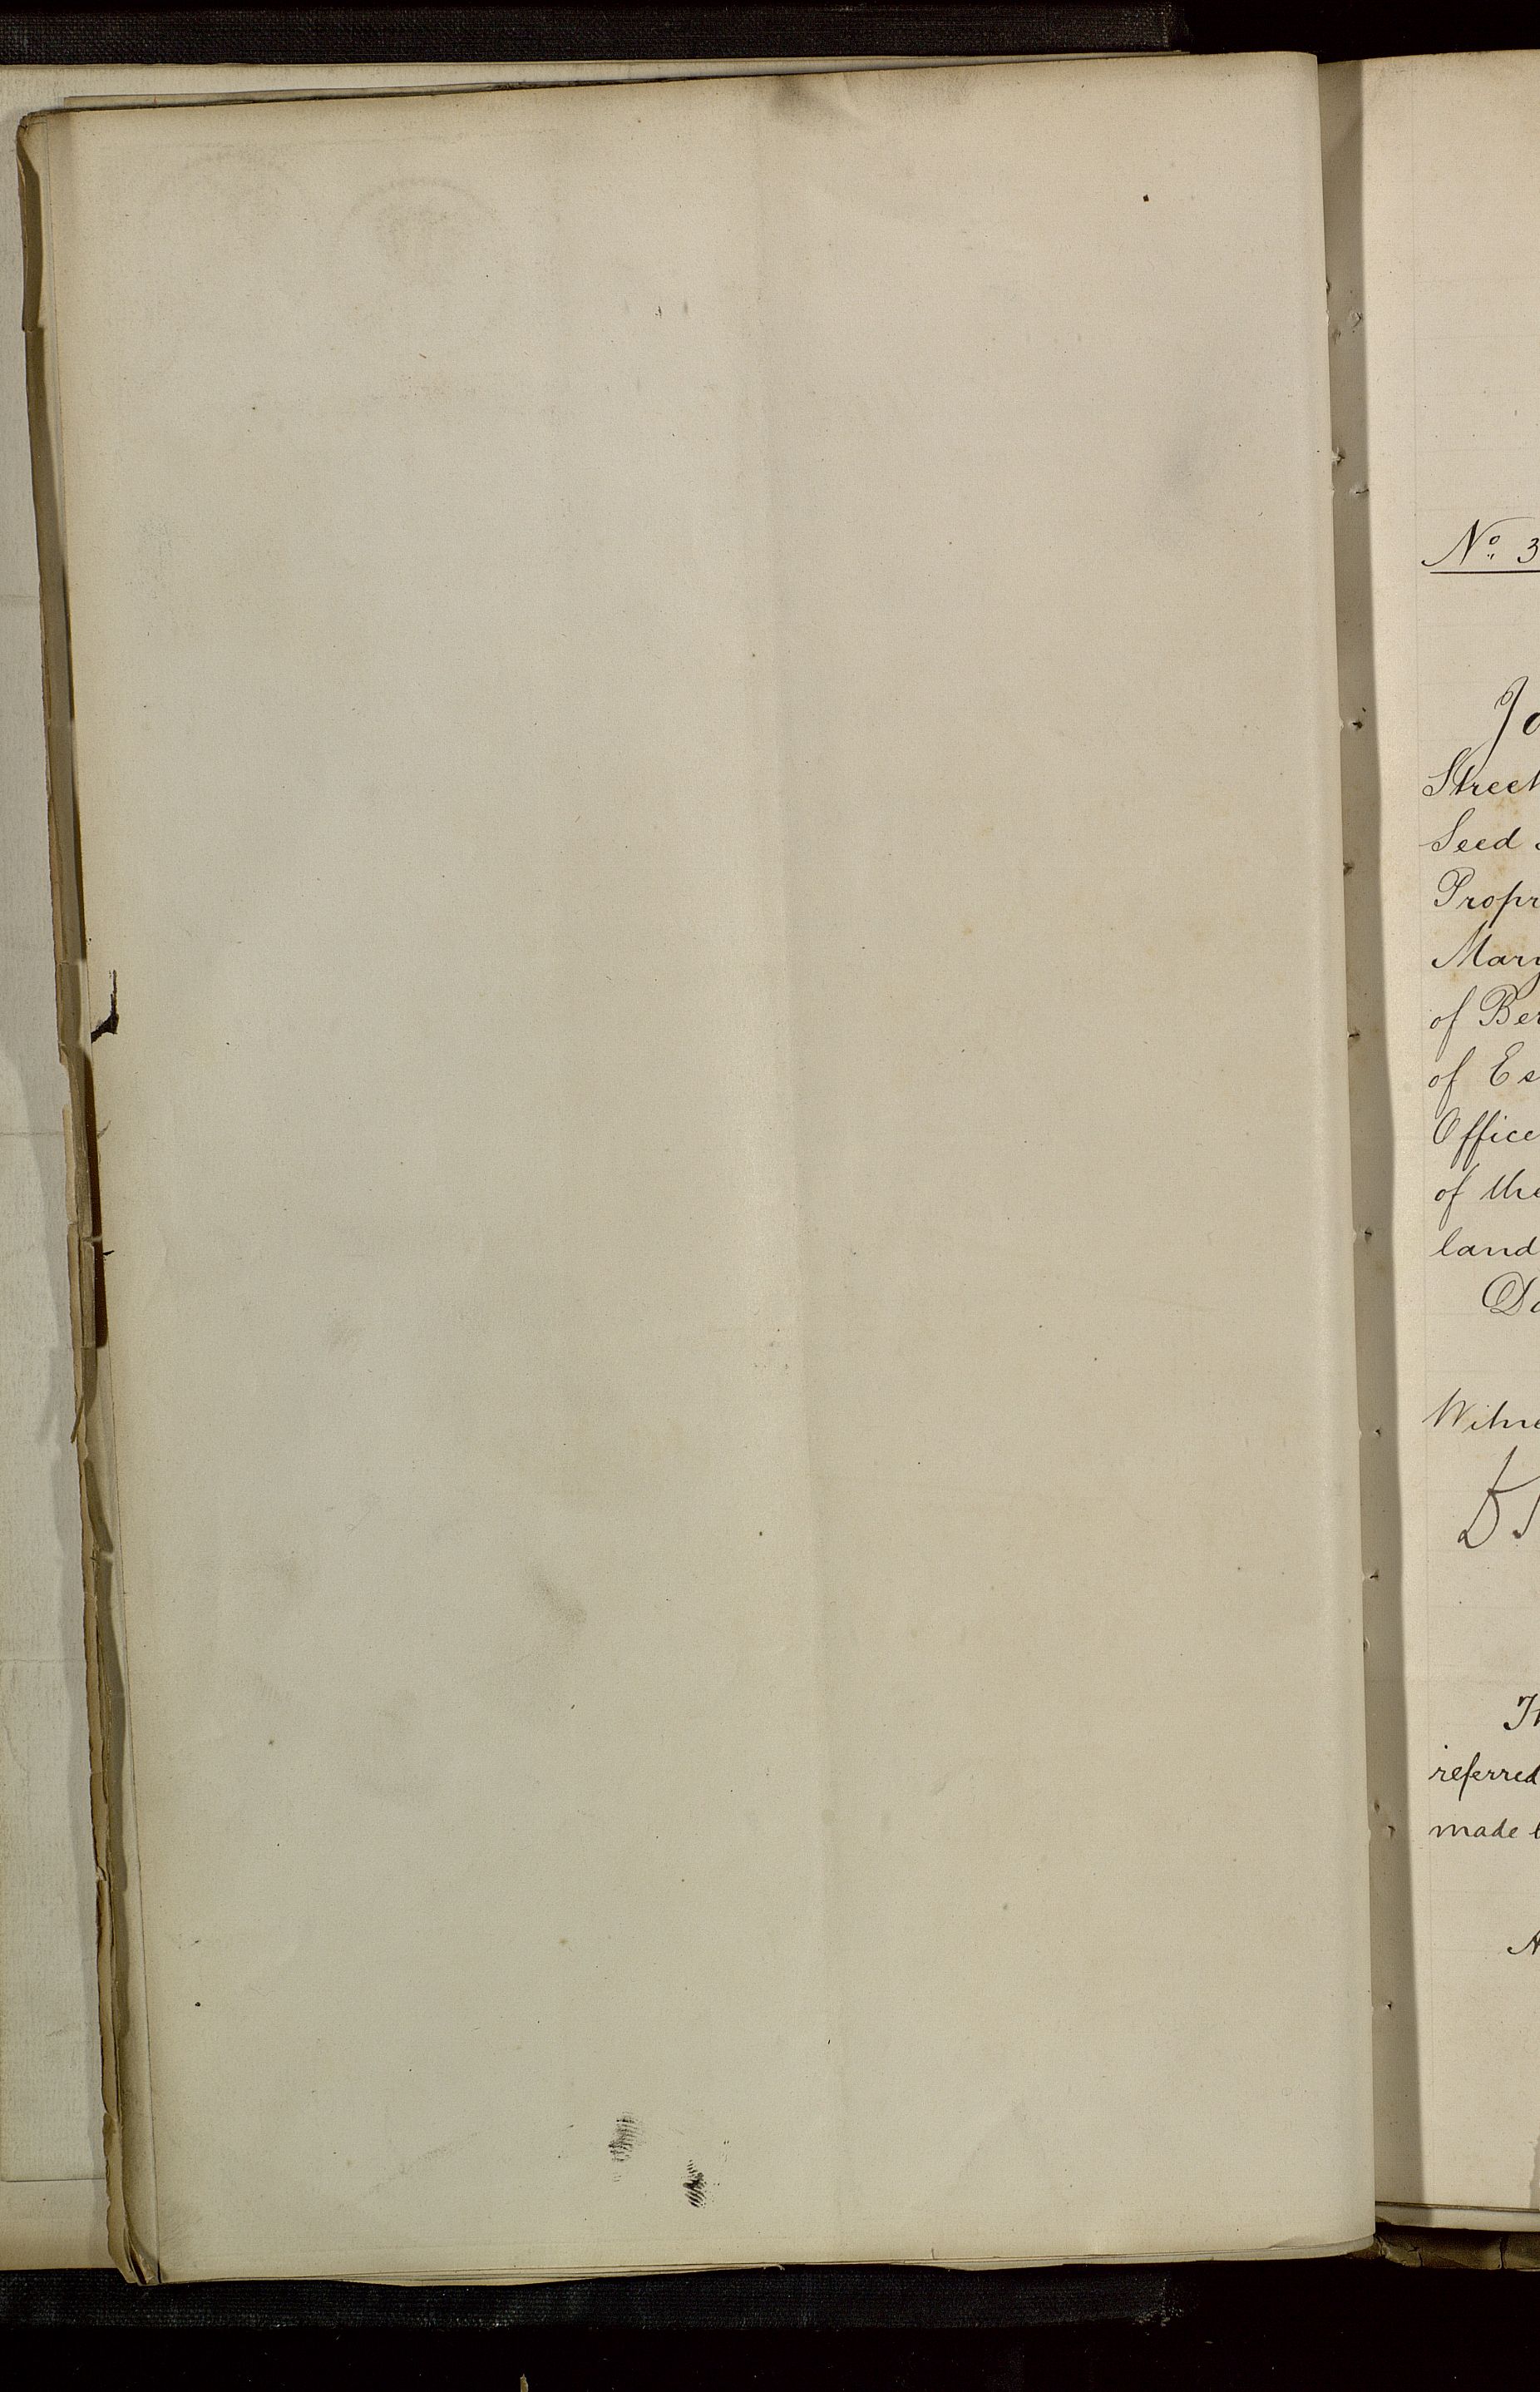 Nº 3
Jo
Street
Seed
Propr
Mary
of Ber
of Es
Office
of the
land
Da
Witne
referred
made